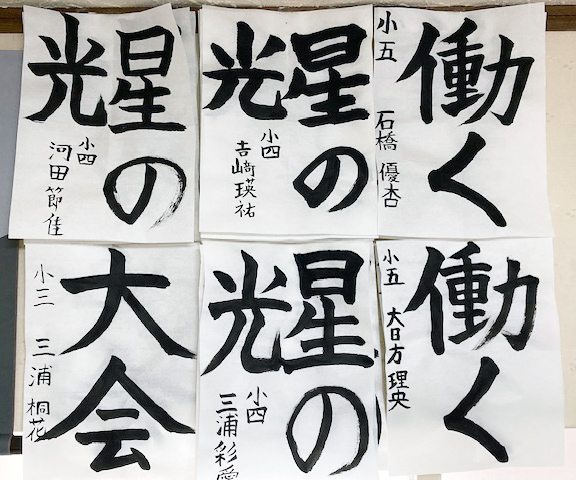 働く
小五
石橋 優杏
星の
光
小四
吉﨑瑛祐
星の
光
小四
河田節佳
働く
小五
大日方 理央
星の
光
小四
三浦彩愛
大会
小三
三浦 桐花